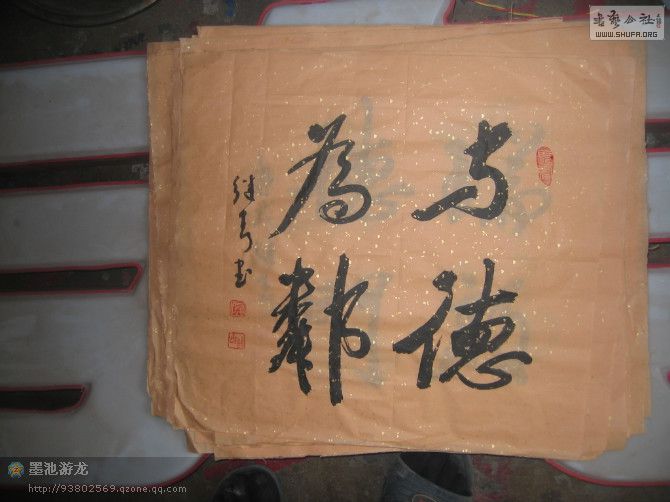 与德
为邻
书艺公社
WWW.SHUFA.ORG
墨池游龙
http://93802569.qzone.qq.com